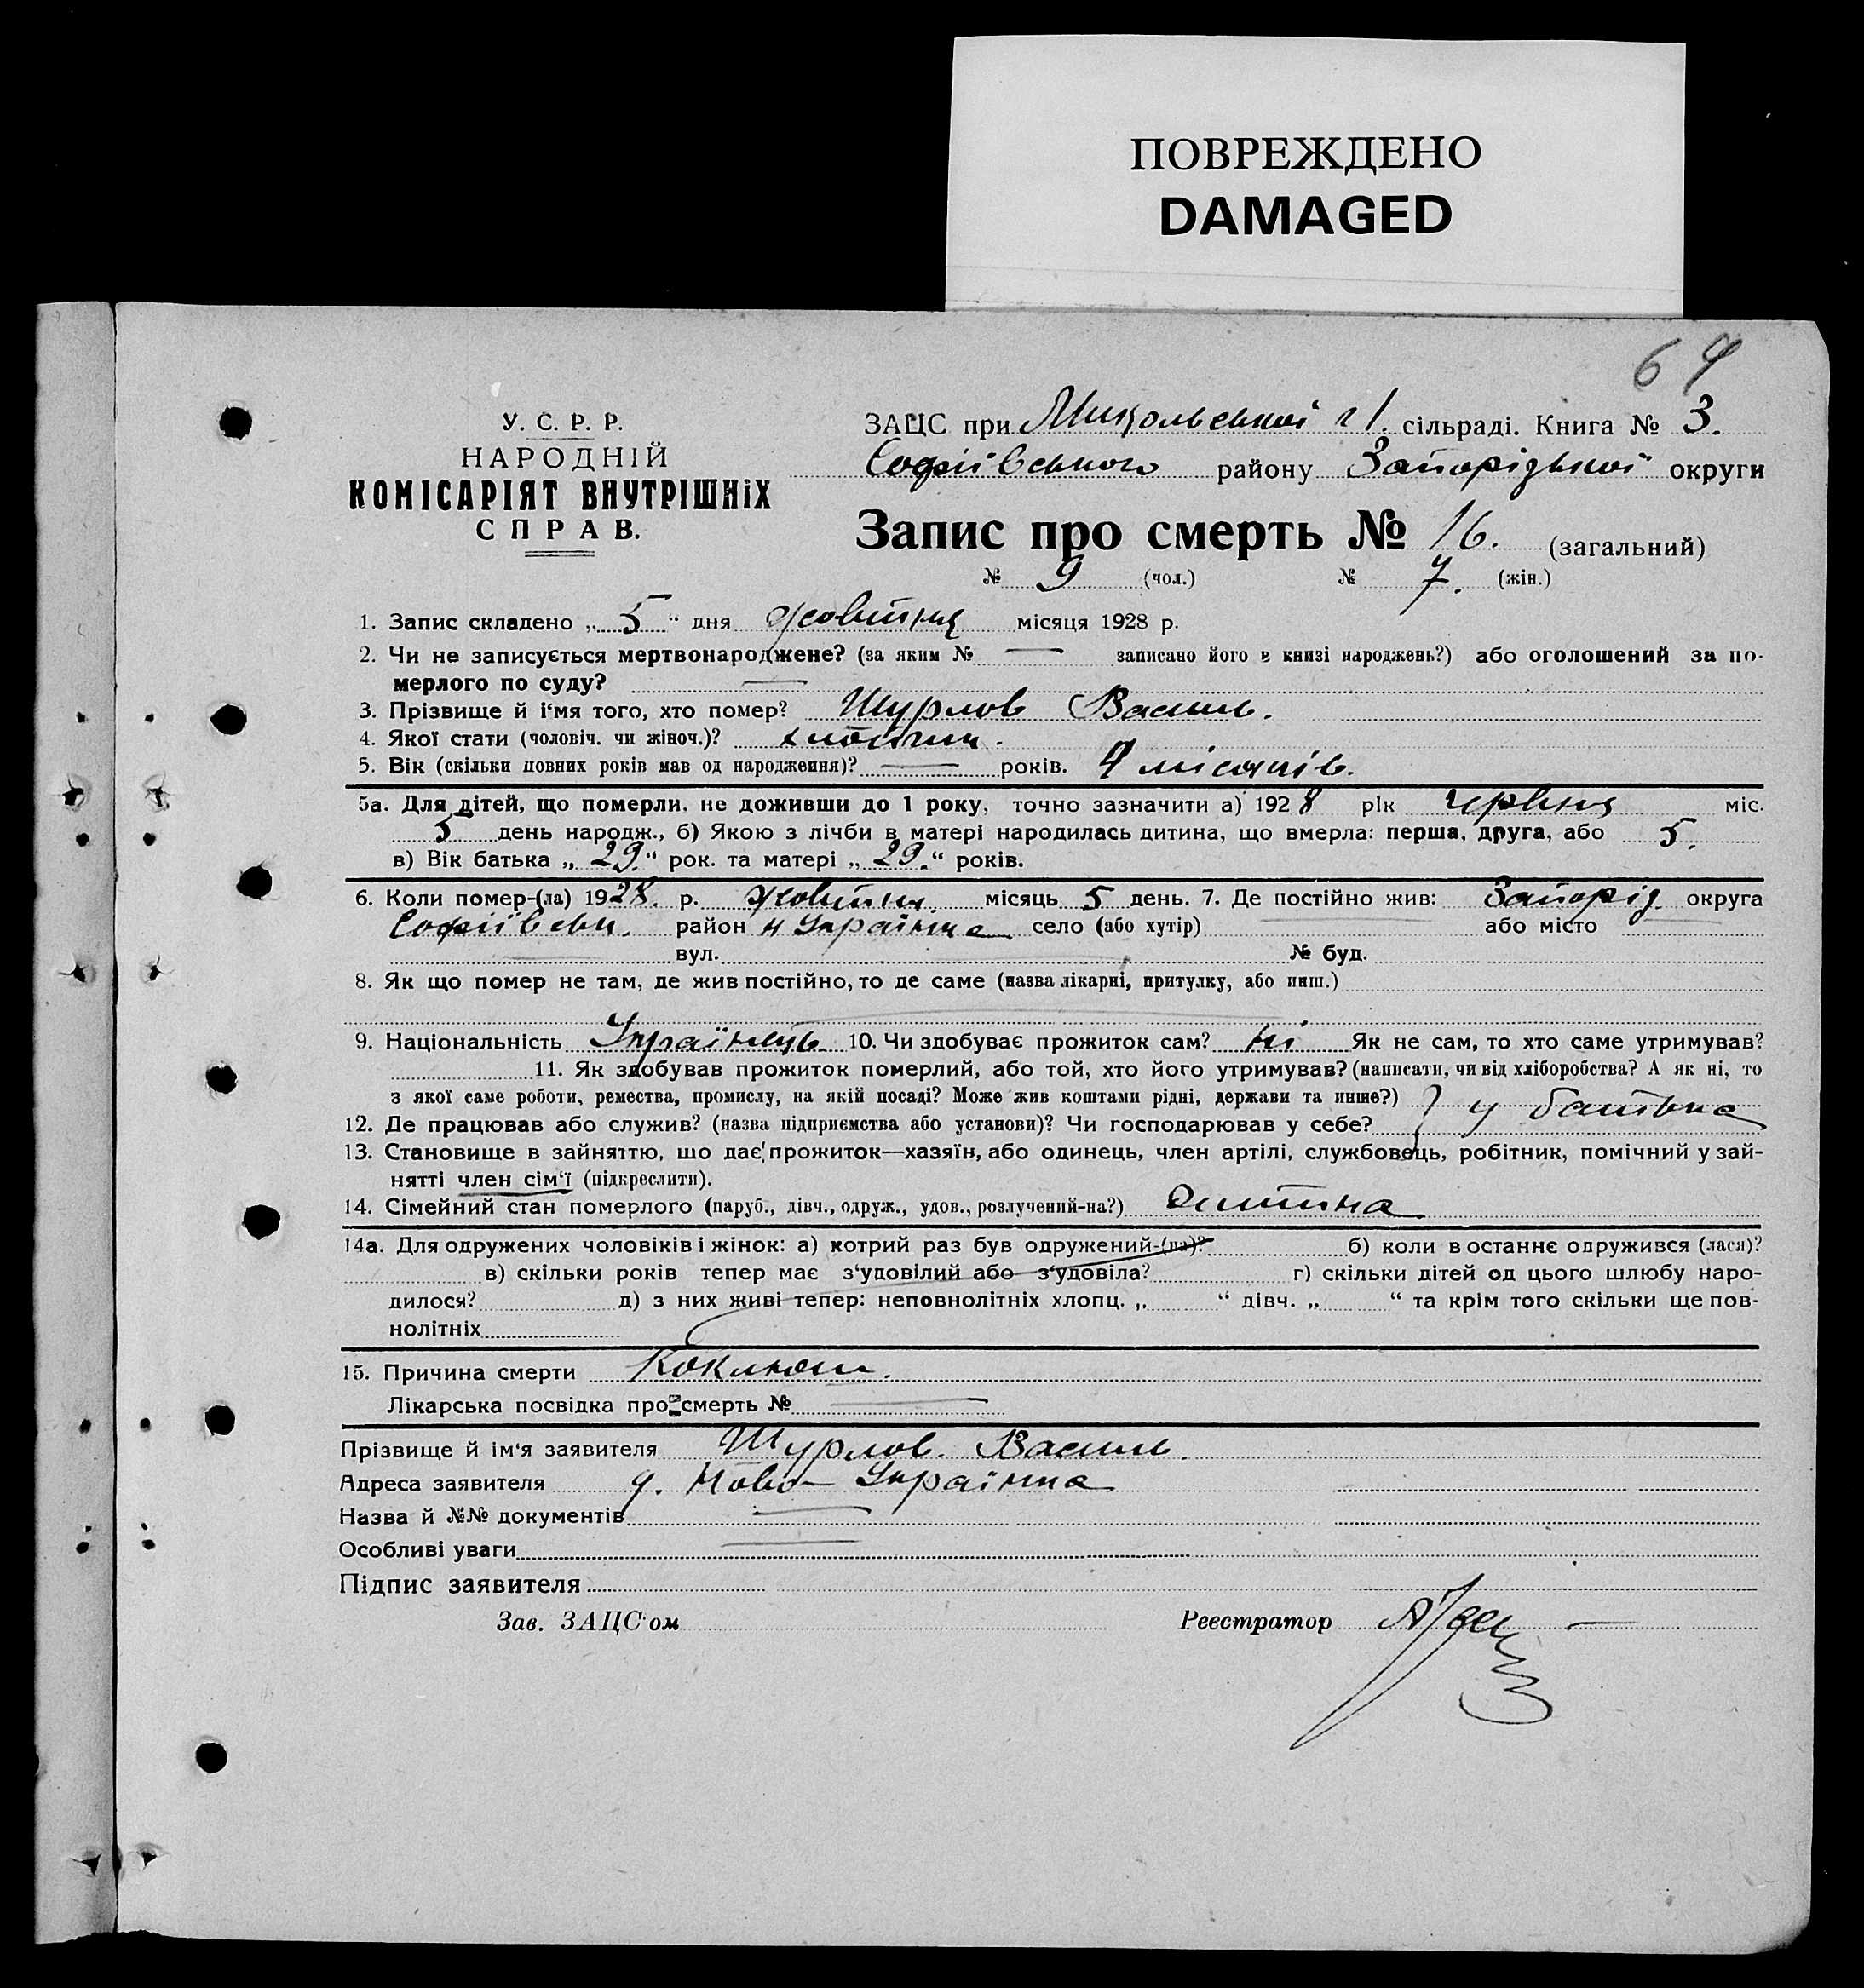 ПОВРЕЖДЕНО
DAMAGED
У. С. Р. Р.
НАРОДНІЙ
КОМІСАРІЯТ ВНУТРІШНІХ
СПРАВ.
ЗАЦС при Микольської сільраді. Книга № 3.
Софіївського району Запорізької округи
Запис про смерть № 16. (загальний)
№ 9 (чол.) № 7. (жін.)
1. Запис складено „ 5 “ дня жовтня місяця 1928 р.
2. Чи не записується мертвонароджене? (за яким № — записано його в книзі народжень?) або оголошений за по-
мерлого по суду? —
3. Прізвище й і'мя того, хто помер? Шурлов Василь.
4. Якої стати (чоловіч. чи жіноч.)? хлопчик.
5. Вік (скільки повних років мав од народження)? — років. 4 місяців.
5а. Для дітей, що померли, не доживши до 1 року, точно зазначити а) 1928 рік червня міс.
5 день народж., б) Якою з лічби в матері народилась дитина, що вмерла: перша, друга, або 5.
в) Вік батька „ 29. “ рок. та матері „ 29. “ років.
6. Коли помер-(ла) 1928. р. жовтня. місяць 5 день. 7. Де постійно жив: Запоріз. округа
Софіївськ. район Н Українка село (або хутір) або місто
вул. № буд.
8. Як що помер не там, де жив постійно, то де саме (назва лікарні, притулку, або инш.)
9. Національність Українець. 10. Чи здобуває прожиток сам? ні Як не сам, то хто саме утримував?
11. Як здобував прожиток померлий, або той, хто його утримував? (написати, чи від хліборобства? А як ні, то
з якої саме роботи, ремества, промислу, на якій посаді? Може жив коштами рідні, держави та инше?) } у батька
12. Де працював або служив? (назва підприємства або установи)? Чи господарював у себе?
13. Становище в зайняттю, що дає прожиток—хазяїн, або одинець, член артілі, службовець, робітник, помічний у зай-
нятті член сім'ї (підкреслити).
14. Сімейний стан померлого (паруб., дівч., одруж., удов., розлучений-на?) Дитина
14а. Для одружених чоловіків і жінок: а) котрий раз був одружений-(на)? б) коли востаннє одружився (лася)?
в) скільки років тепер має з'удовілий або з'удовіла? г) скільки дітей од цього шлюбу наро-
дилося? д) з них живі тепер: неповнолітніх хлопц. „ “ дівч. „ “ та крім того скільки ще пов-
нолітніх
15. Причина смерти Коклюш.
Лікарська посвідка про смерть № —
Прізвище й ім'я заявителя Шурлов. Василь.
Адреса заявителя д. Ново-Українка
Назва й №№ документів —
Особливі уваги —
Підпис заявителя
Зав. ЗАЦС'ом Реєстратор